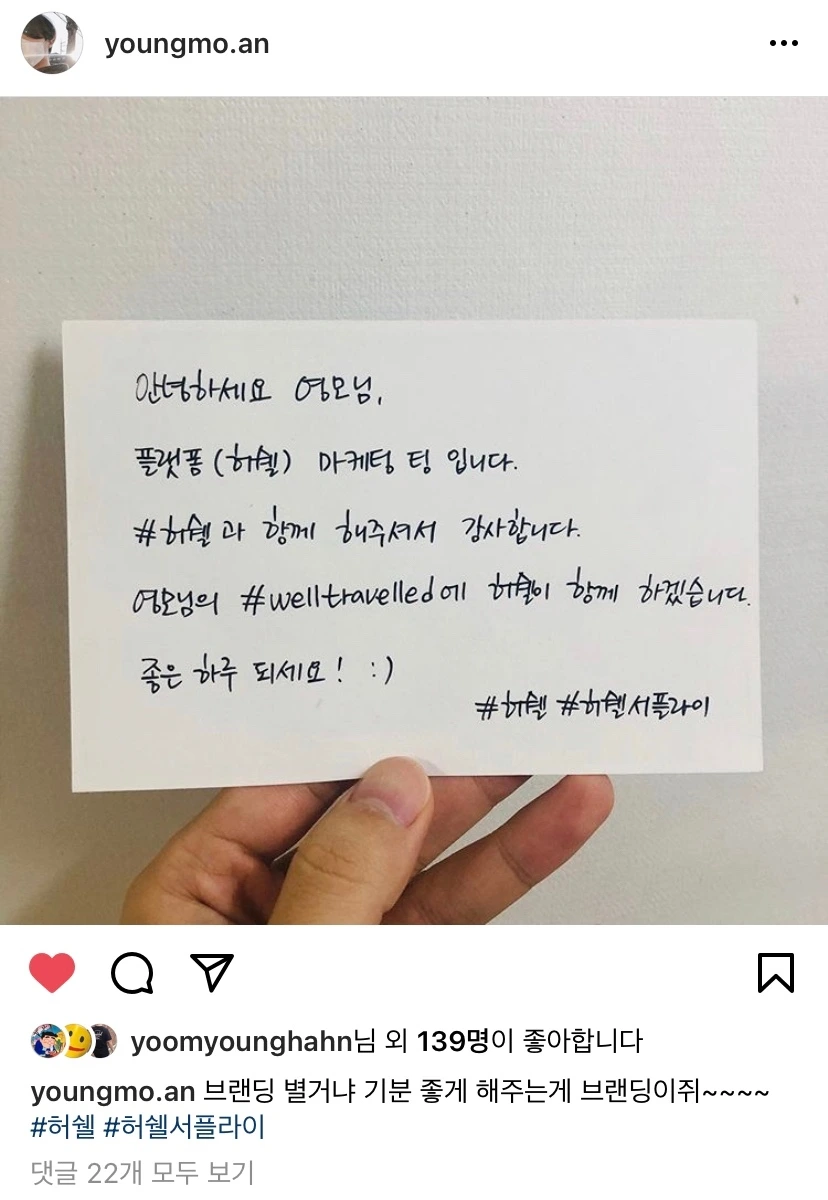 youngmo.an
안녕하세요 영모님,
플랫폼(허쉘) 마케팅 팀 입니다.
#허쉘과 함께 해주셔서 감사합니다.
영모님의 #welltravelled에 허쉘이 함께 하겠습니다.
좋은 하루 되세요! :)
#허쉘 #허쉘서플라이
yoomyounghahn님 외 139명이 좋아합니다
youngmo.an 브랜딩 별거냐 기분 좋게 해주는게 브랜딩이쥐~~~~
#허쉘 #허쉘서플라이
댓글 22개 모두 보기